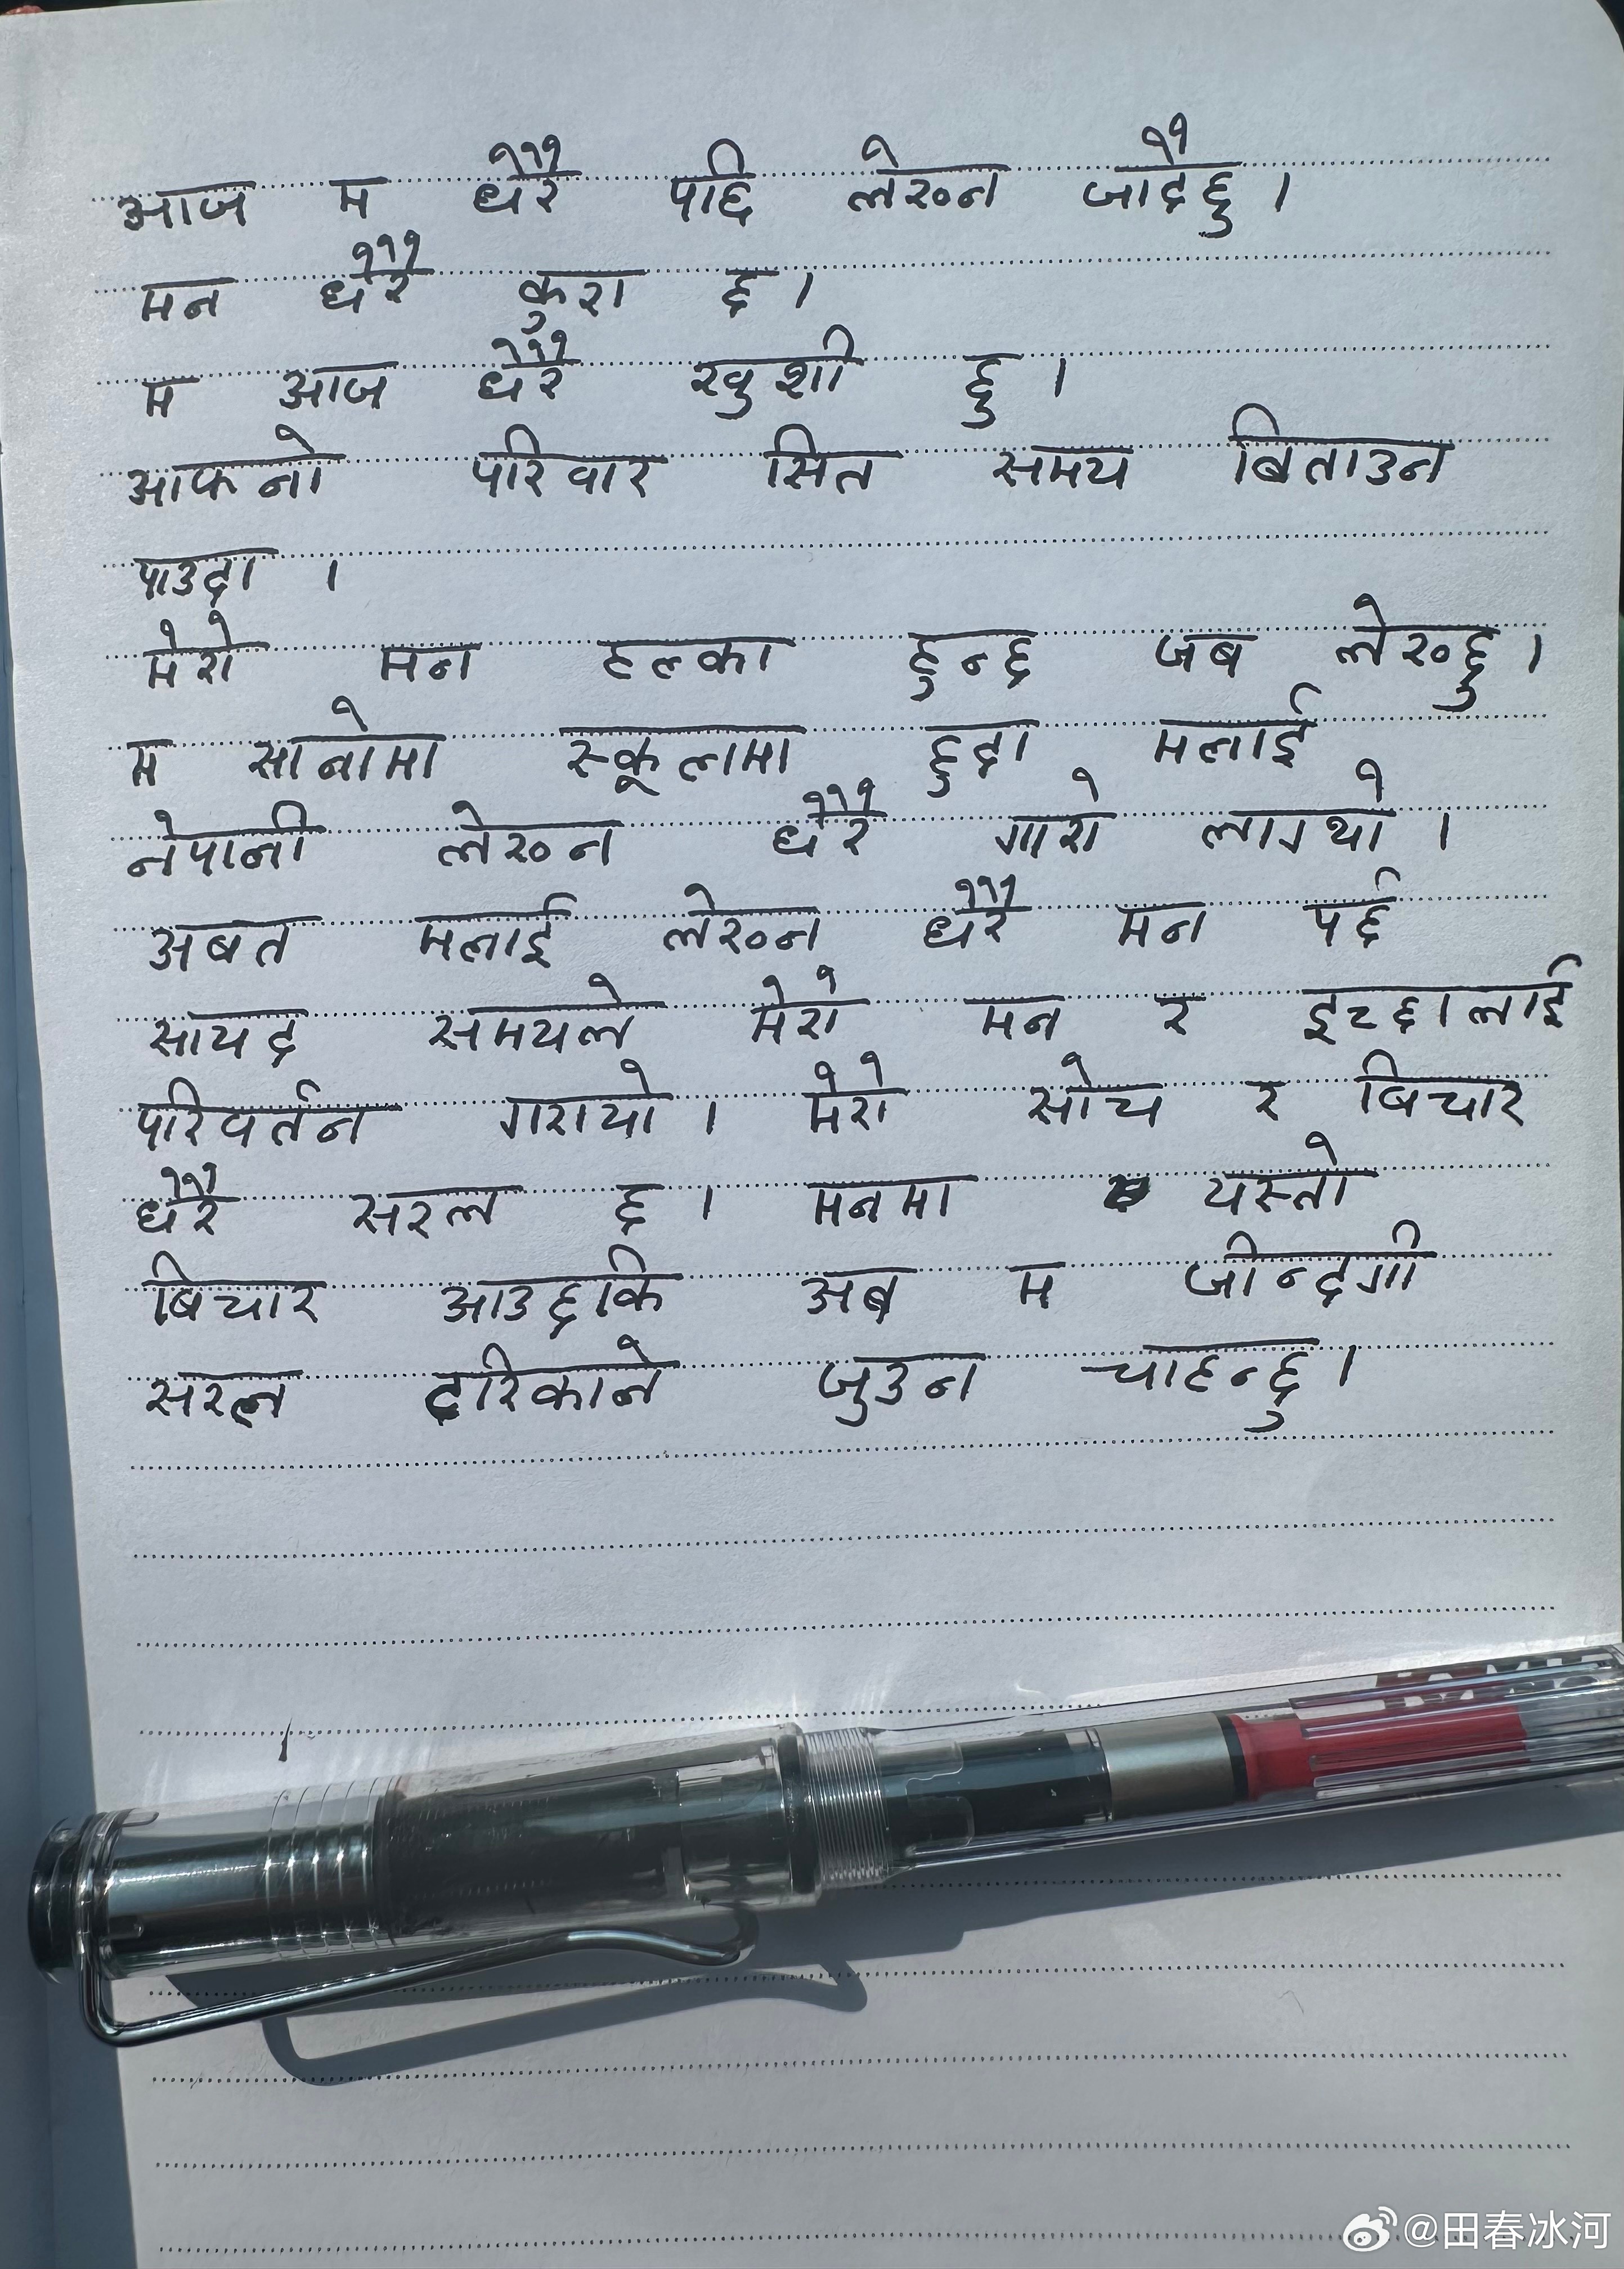 आज म धेरै पछि लेख्न जादैछु ।
मन धेरै कुरा छ ।
म आज धेरै खुशी छु ।
आफ्नो परिवार सित समय बिताउन
पाउदा ।
मेरो मन हल्का हुन्छ जब लेख्छु ।
म सानोमा स्कूलमा हुदा मलाई
नेपाली लेख्न धेरै गारो लाग्थो ।
अबत मलाई लेख्न धेरै मन पर्छ
सायद समयले मेरो मन र इच्छालाई
परिवर्तन गरायो । मेरो सोच र बिचार
धेरै सरल छ । मनमा यस्तो
बिचार आउछकि अब म जीन्दगी
सरल तरिकाले जुउन चाहन्छु ।
@田春冰河